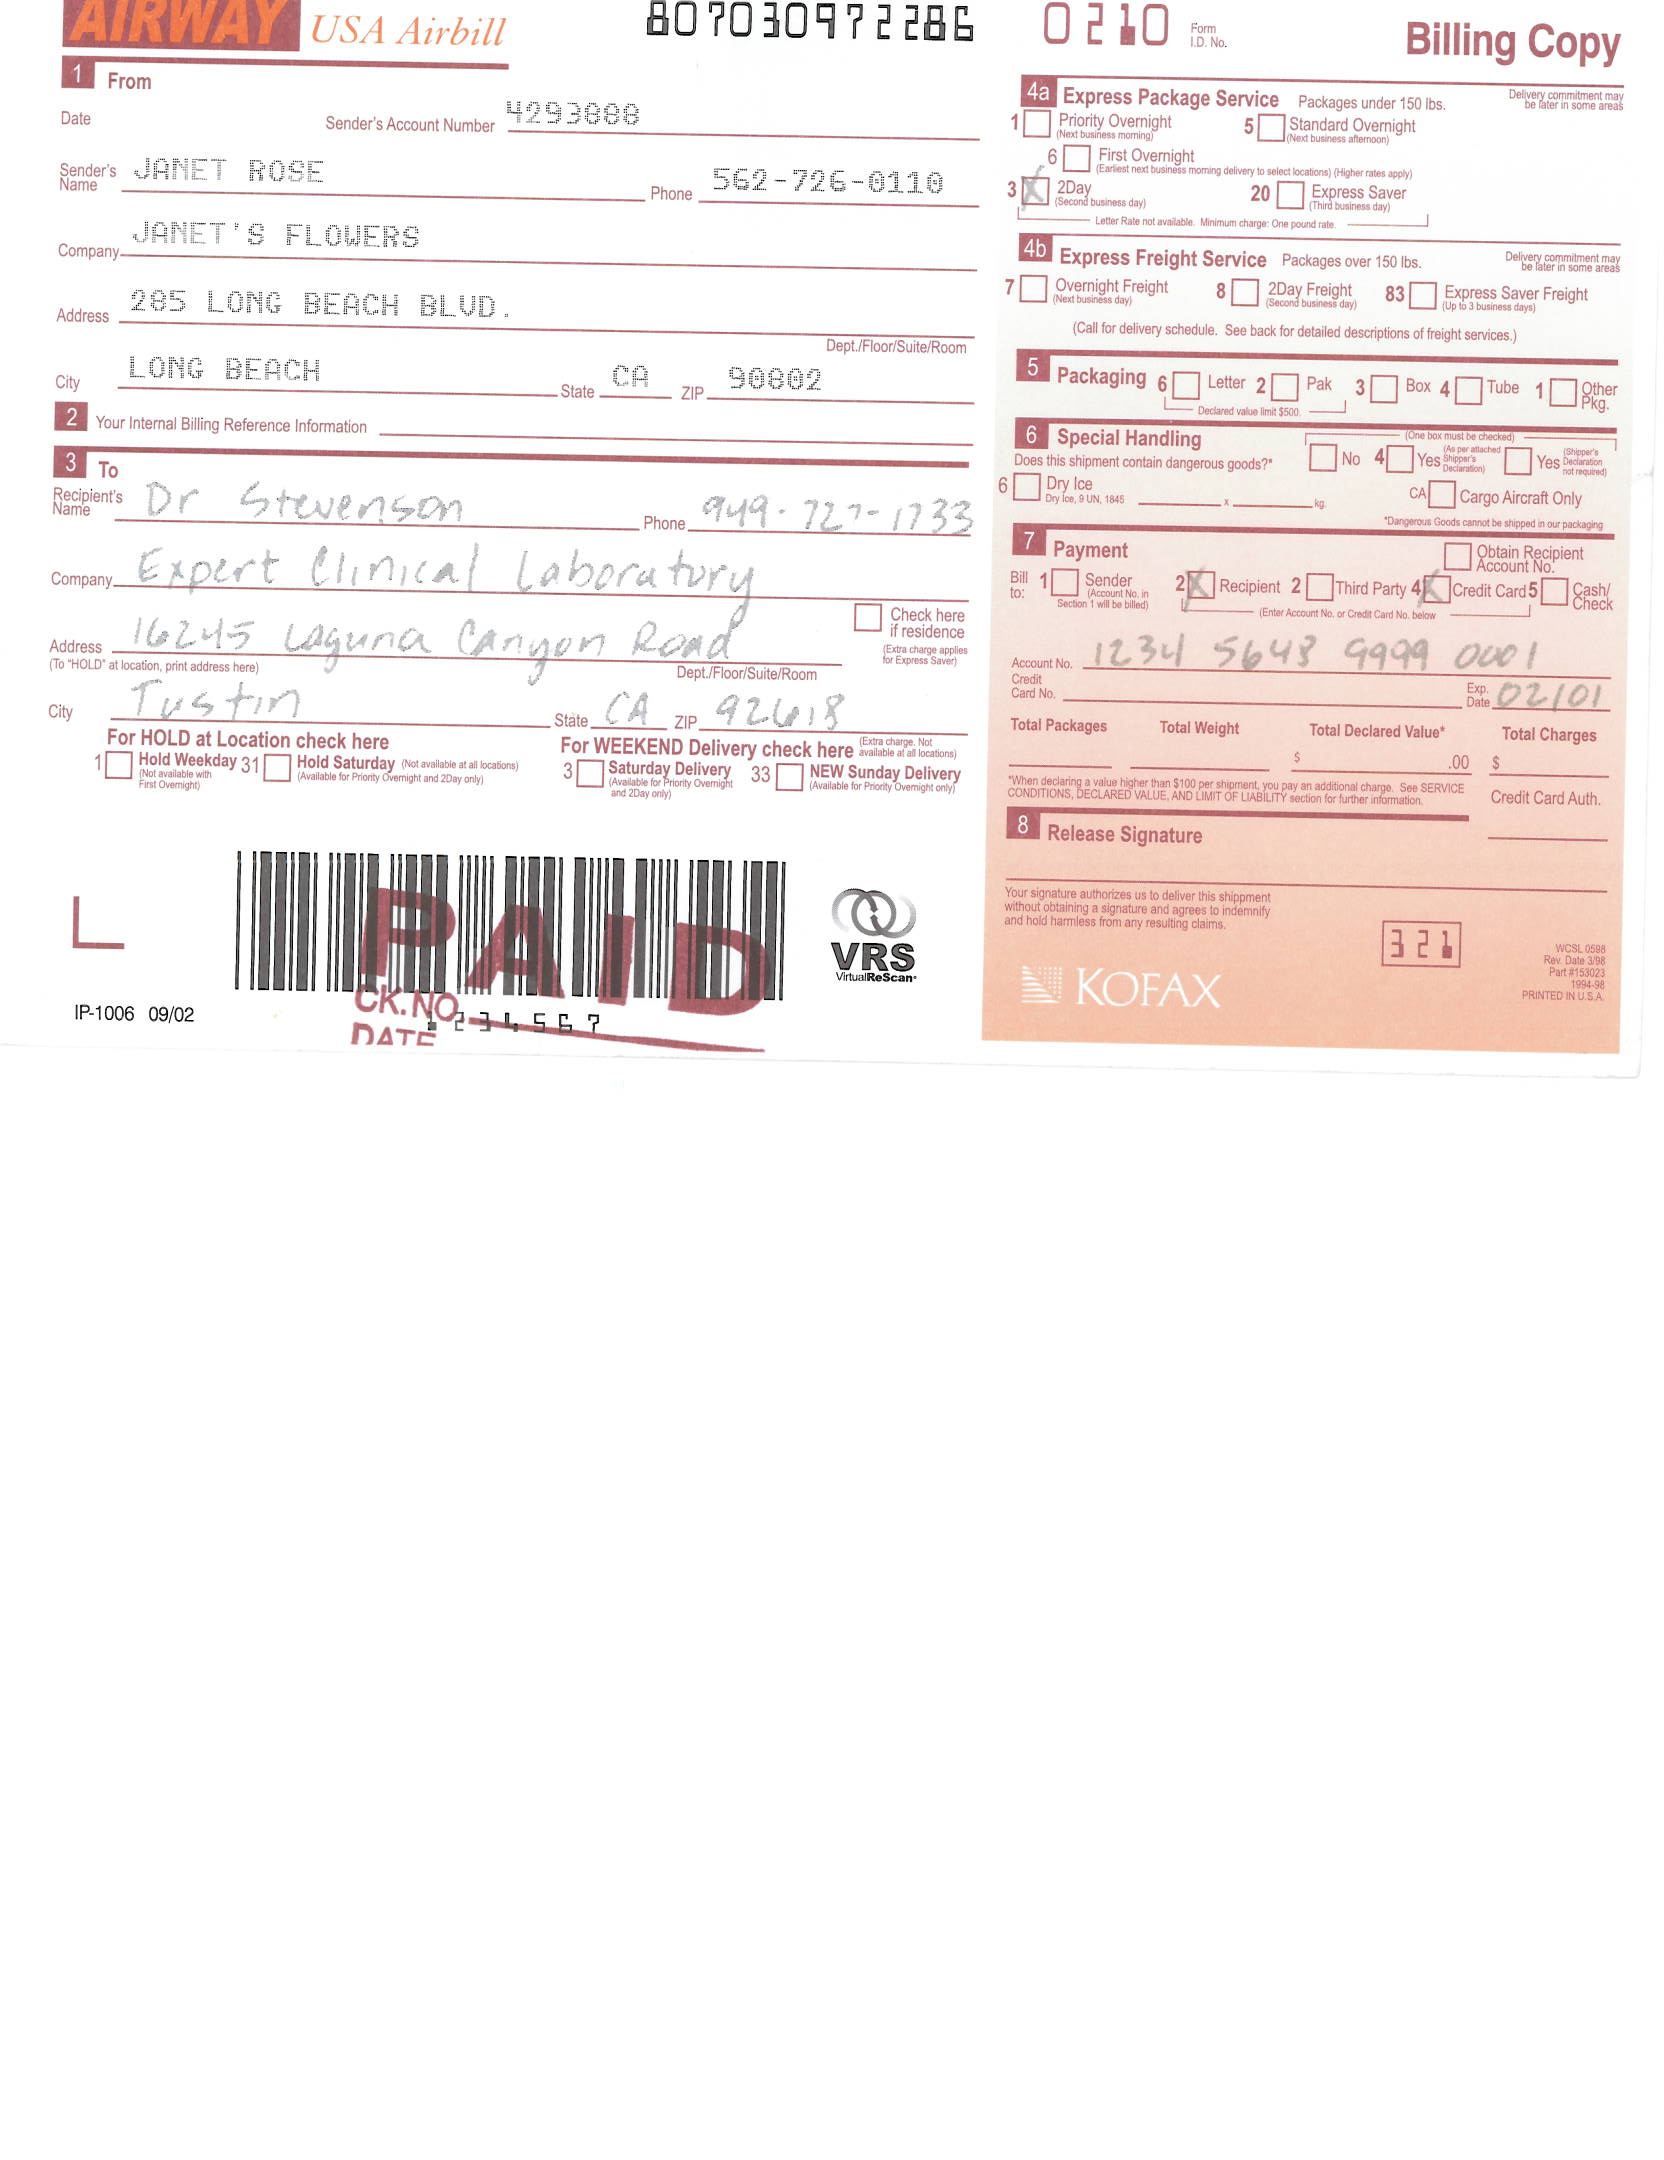 AIRWAY USA Airbill
807030972286
0210 Form I.D. No.
Billing Copy
1 From
Date
Sender's Account Number 4293888
Sender's Name JANET ROSE
Phone 562-726-0110
Company JANET'S FLOWERS
Address 285 LONG BEACH BLVD.
Dept./Floor/Suite/Room
City LONG BEACH State CA ZIP 90802
2 Your Internal Billing Reference Information
3 To
Recipient's Name Dr Stevenson
Phone 949-727-1733
Company Expert Clinical Laboratory
Check here if residence
(Extra charge applies for Express Saver)
Address 16245 Laguna Canyon Road
(To "HOLD" at location, print address here)
Dept./Floor/Suite/Room
City Tustin State CA ZIP 92618
For HOLD at Location check here
1 Hold Weekday (Not available with First Overnight)
31 Hold Saturday (Not available at all locations)
(Available for Priority Overnight and 2Day only)
For WEEKEND Delivery check here (Extra charge. Not available at all locations)
3 Saturday Delivery (Available for Priority Overnight and 2Day only)
33 NEW Sunday Delivery (Available for Priority Overnight only)
PAID
CK.NO.
1234567
DATE
VRS
VirtualReScan
IP-1006 09/02
4a Express Package Service Packages under 150 lbs.
Delivery commitment may be later in some areas
1 Priority Overnight (Next business morning)
5 Standard Overnight (Next business afternoon)
6 First Overnight
(Earliest next business morning delivery to select locations) (Higher rates apply)
3 X 2Day (Second business day)
20 Express Saver (Third business day)
Letter Rate not available. Minimum charge: One pound rate.
4b Express Freight Service Packages over 150 lbs.
Delivery commitment may be later in some areas
7 Overnight Freight (Next business day)
8 2Day Freight (Second business day)
83 Express Saver Freight (Up to 3 business days)
(Call for delivery schedule. See back for detailed descriptions of freight services.)
5 Packaging 6 Letter 2 Pak 3 Box 4 Tube 1 Other Pkg.
Declared value limit $500.
6 Special Handling
(One box must be checked)
Does this shipment contain dangerous goods?*
No 4 Yes (As per attached Shipper's Declaration) Yes (Shipper's Declaration not required)
6 Dry Ice
Dry Ice, 9 UN, 1845 x kg.
CA Cargo Aircraft Only
*Dangerous Goods cannot be shipped in our packaging
7 Payment
Obtain Recipient Account No.
Bill to: 1 Sender (Account No. in Section 1 will be billed)
2 X Recipient 2 Third Party 4 X Credit Card 5 Cash/Check
(Enter Account No. or Credit Card No. below
Account No. 1234 5643 9999 0001
Credit Card No.
Exp. Date 02/01
Total Packages Total Weight Total Declared Value* Total Charges
$ .00 $
*When declaring a value higher than $100 per shipment, you pay an additional charge. See SERVICE CONDITIONS, DECLARED VALUE, AND LIMIT OF LIABILITY section for further information.
Credit Card Auth.
8 Release Signature
Your signature authorizes us to deliver this shippment
without obtaining a signature and agrees to indemnify
and hold harmless from any resulting claims.
321
KOFAX
WCSL 0598
Rev. Date 3/98
Part #153023
1994-98
PRINTED IN U.S.A.